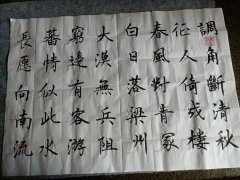 調角斷清秋
征人倚戍樓
春風對青冢
白日落梁州
大漠無兵阻
窮邊有客游
蕃情似此水
長愿向南流